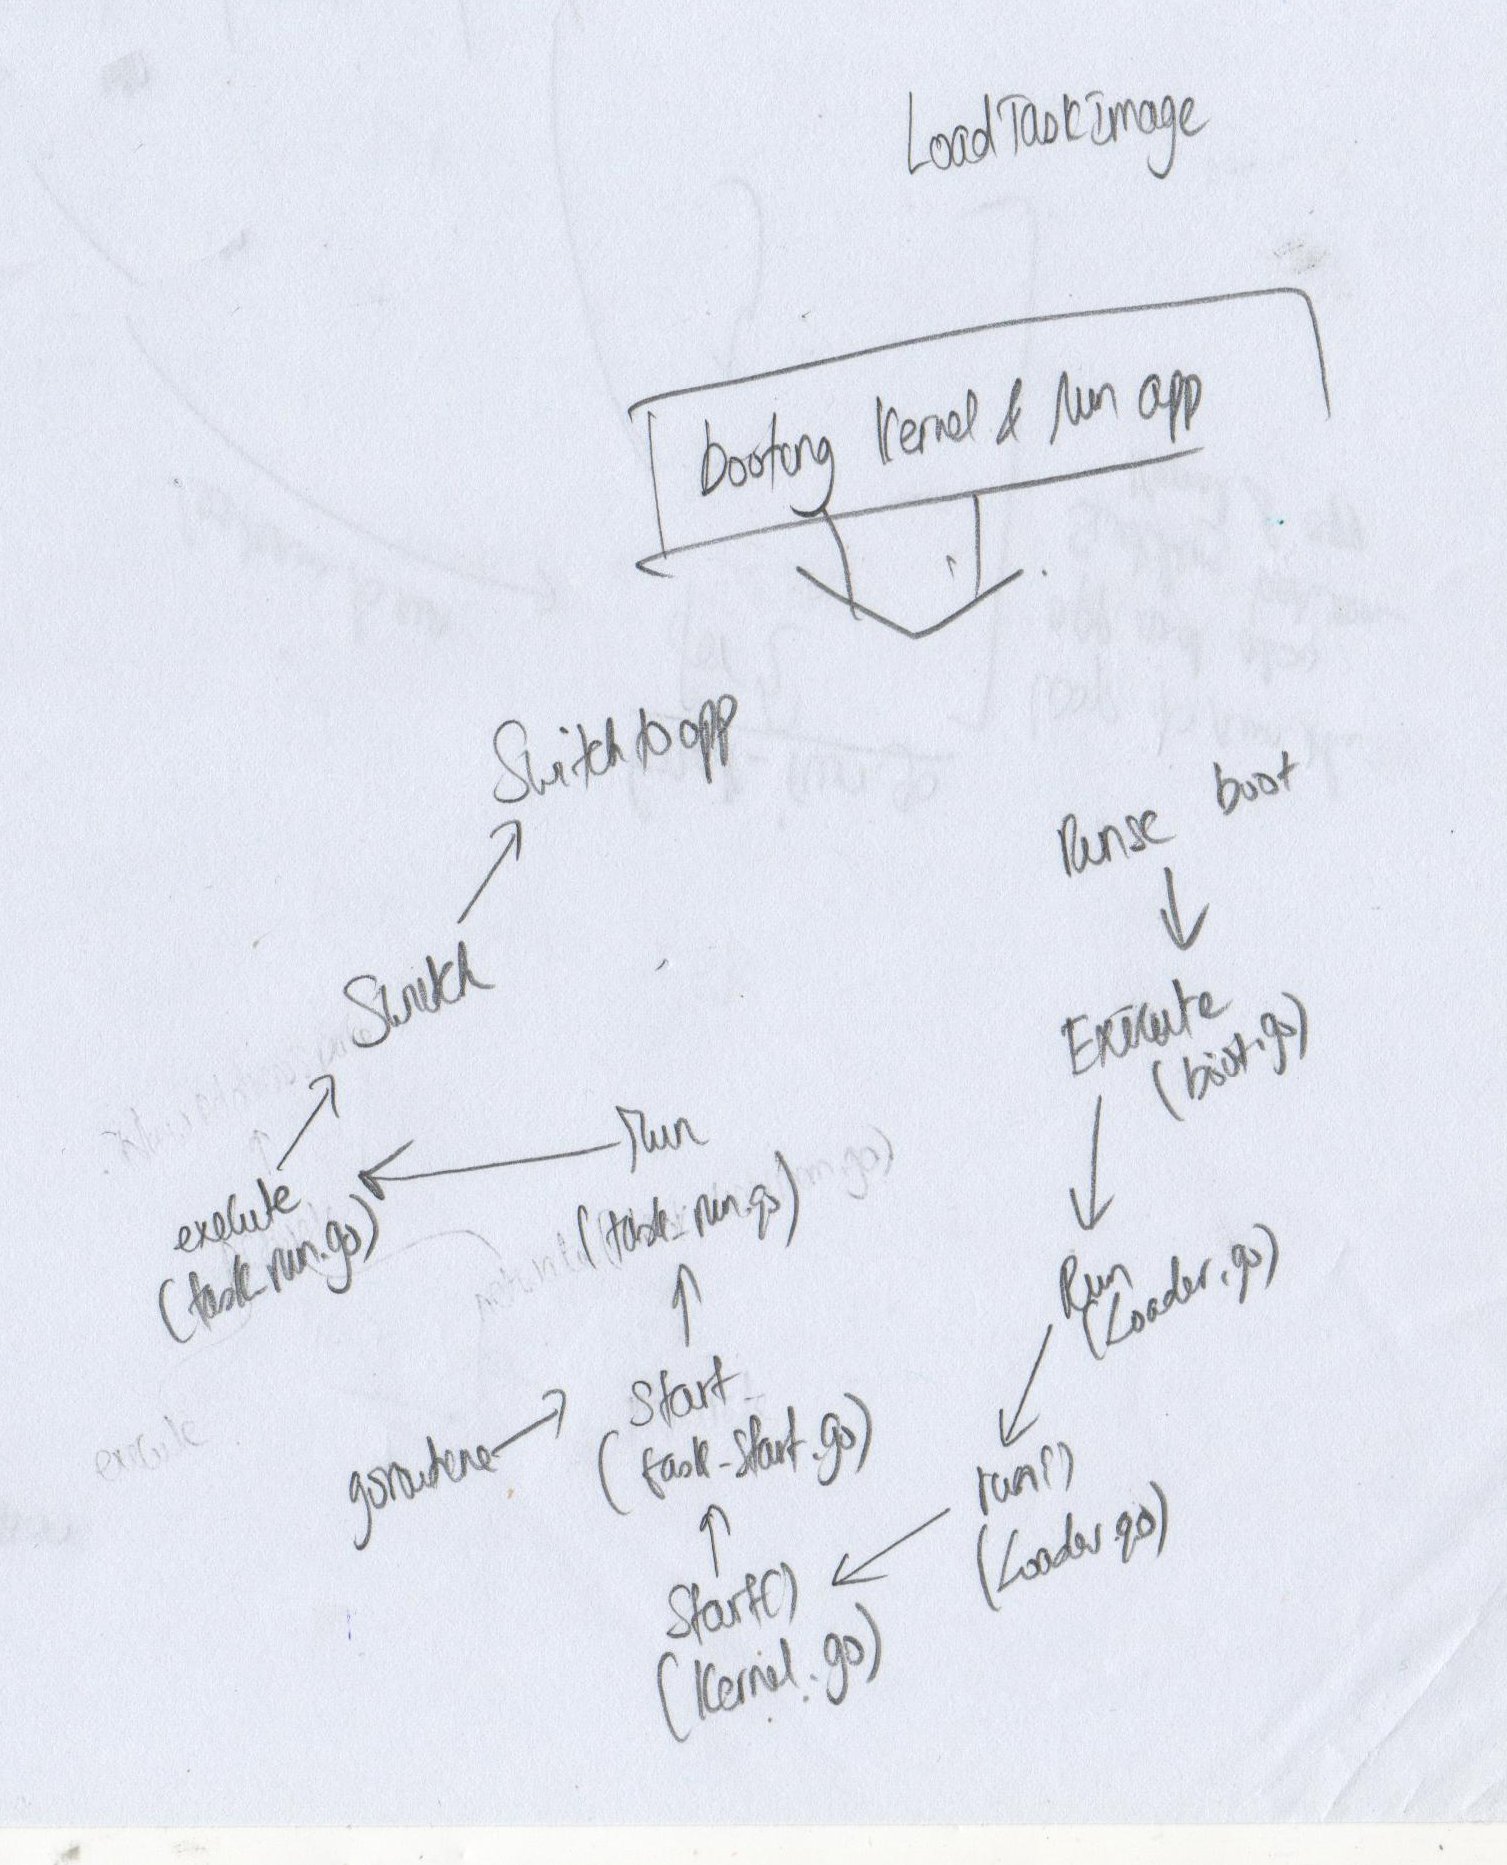 LoadTaskImage
booting Kernel & run app
Switch to app
boot
Switch
Execute
(boot.go)
Run
(task_run.go)
execute
(task_run.go)
Run
(Loader.go)
Start
(task_start.go)
goroutene
run()
(Loader.go)
Start()
(Kernel.go)
execute